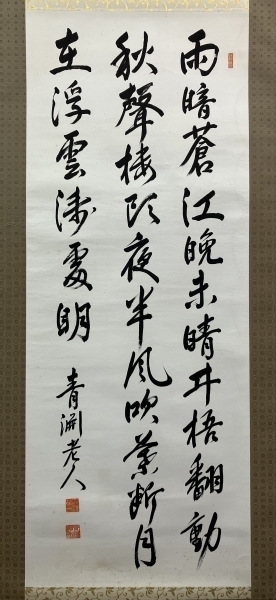 雨暗蒼江晚未晴井梧翻動
秋聲樓頭夜半風吹葉断月
在浮雲淺處明
青淵老人